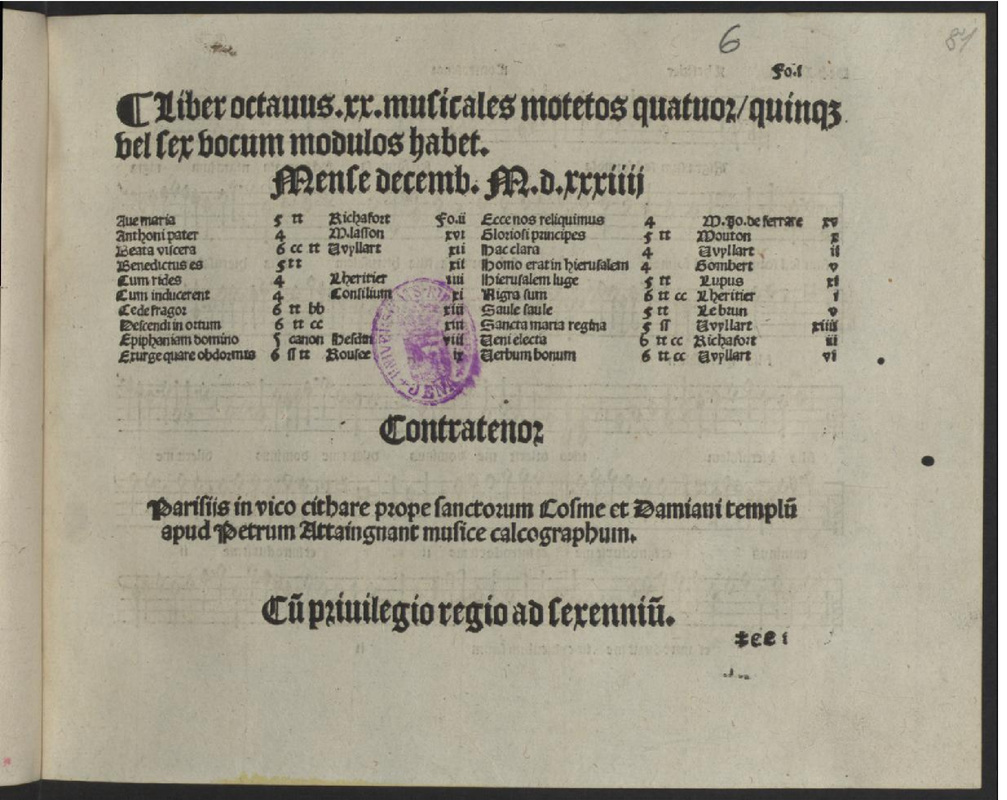 6
81
Fo.i
¶ Liber octauus.xx.musicales motetos quatuor/quinqȝ
vel sex vocum modulos habet.
Mense decemb. M.d.xxxiiij
Aue maria 5 tt Richafort Fo.ii Ecce nos reliquimus 4 M.Jo.de ferrare xv
Anthoni pater 4 M.lasson xvi Gloriosi principes 5 tt Mouton x
Beata viscera 6 cc tt Vvyllart xii Hac clara 4 Vvyllart ii
Benedictus es 5 tt xii Homo erat in hierusalem 4 Gombert v
Cum rides 4 Lheritier iiii Hierusalem luge 5 tt Lupus xi
Cum inducerent 4 Consilium xi Nigra sum 6 tt cc Lheritier i
Cede fragor 6 tt bb xiii Saule saule 5 tt Le brun v
Descendi in ortum 6 tt cc xiii Sancta maria regina 5 ss Vvyllart xiiii
Epiphaniam domino 5 canon Hesdin viii Veni electa 6 tt cc Richafort iii
Exurge quare obdormis 6 ss tt Rousee ix Verbum bonum 6 tt cc Vvyllart vi
JENA
Contratenor
Parisiis in vico cithare prope sanctorum Cosme et Damiani templū
apud Petrum Attaingnant musice calcographum.
Cū priuilegio regio ad sexenniū.
‡ee i